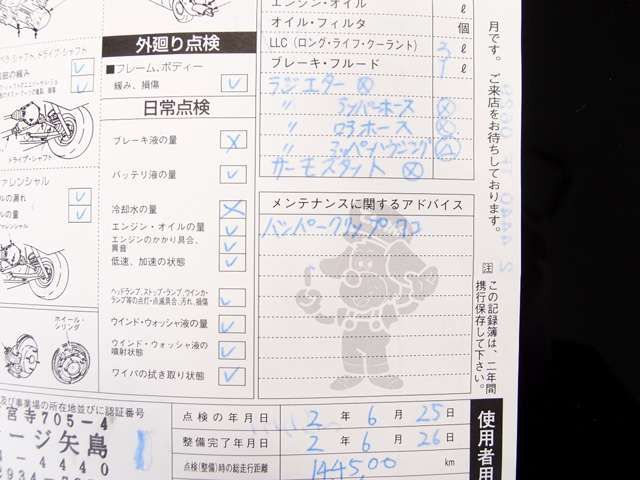 エンジン・オイル ℓ
オイル・フィルタ 個
LLC（ロング・ライフ・クーラント） 3 ℓ
ブレーキ・フルード 1 ℓ
ラジエター ⓧ
〃 アッパーホース ⓧ
〃 ロアホース ⓧ
サーモスタット ⓧ
外廻り点検
■フレーム、ボディー
緩み、損傷 ✓
日常点検
ブレーキ液の量 ✗
バッテリ液の量 ✓
冷却水の量 ✗
エンジン・オイルの量 ✓
エンジンのかかり具合、
異音 ✓
低速、加速の状態 ✓
ヘッドランプ、ストップ・ランプ、ウインカ・
ランプ等の点灯・点滅具合、汚れ、損傷 ✓
ウインド・ウォッシャ液の量 ✓
ウインド・ウォッシャ液の
噴射状態 ✓
ワイパの拭き取り状態 ✓
シャフト、ドライブ・シャフト
部の緩み ✓
ドライブ・シャフト
ァレンシャル
ルの漏れ ✓
ルの量 ✓
ホイール・
シリンダ
メンテナンスに関するアドバイス
バンパークリップ
月です。ご来店をお待ちしております。
注 この記録簿は、二年間
携行保存して下さい。
及び事業場の所在地並びに認証番号
宮寺705-4
ージ矢島
4440
2934
点検の年月日 2 年 6 月 25 日
整備完了年月日 2 年 6 月 26 日
点検（整備）時の総走行距離 144500 km
使用者用